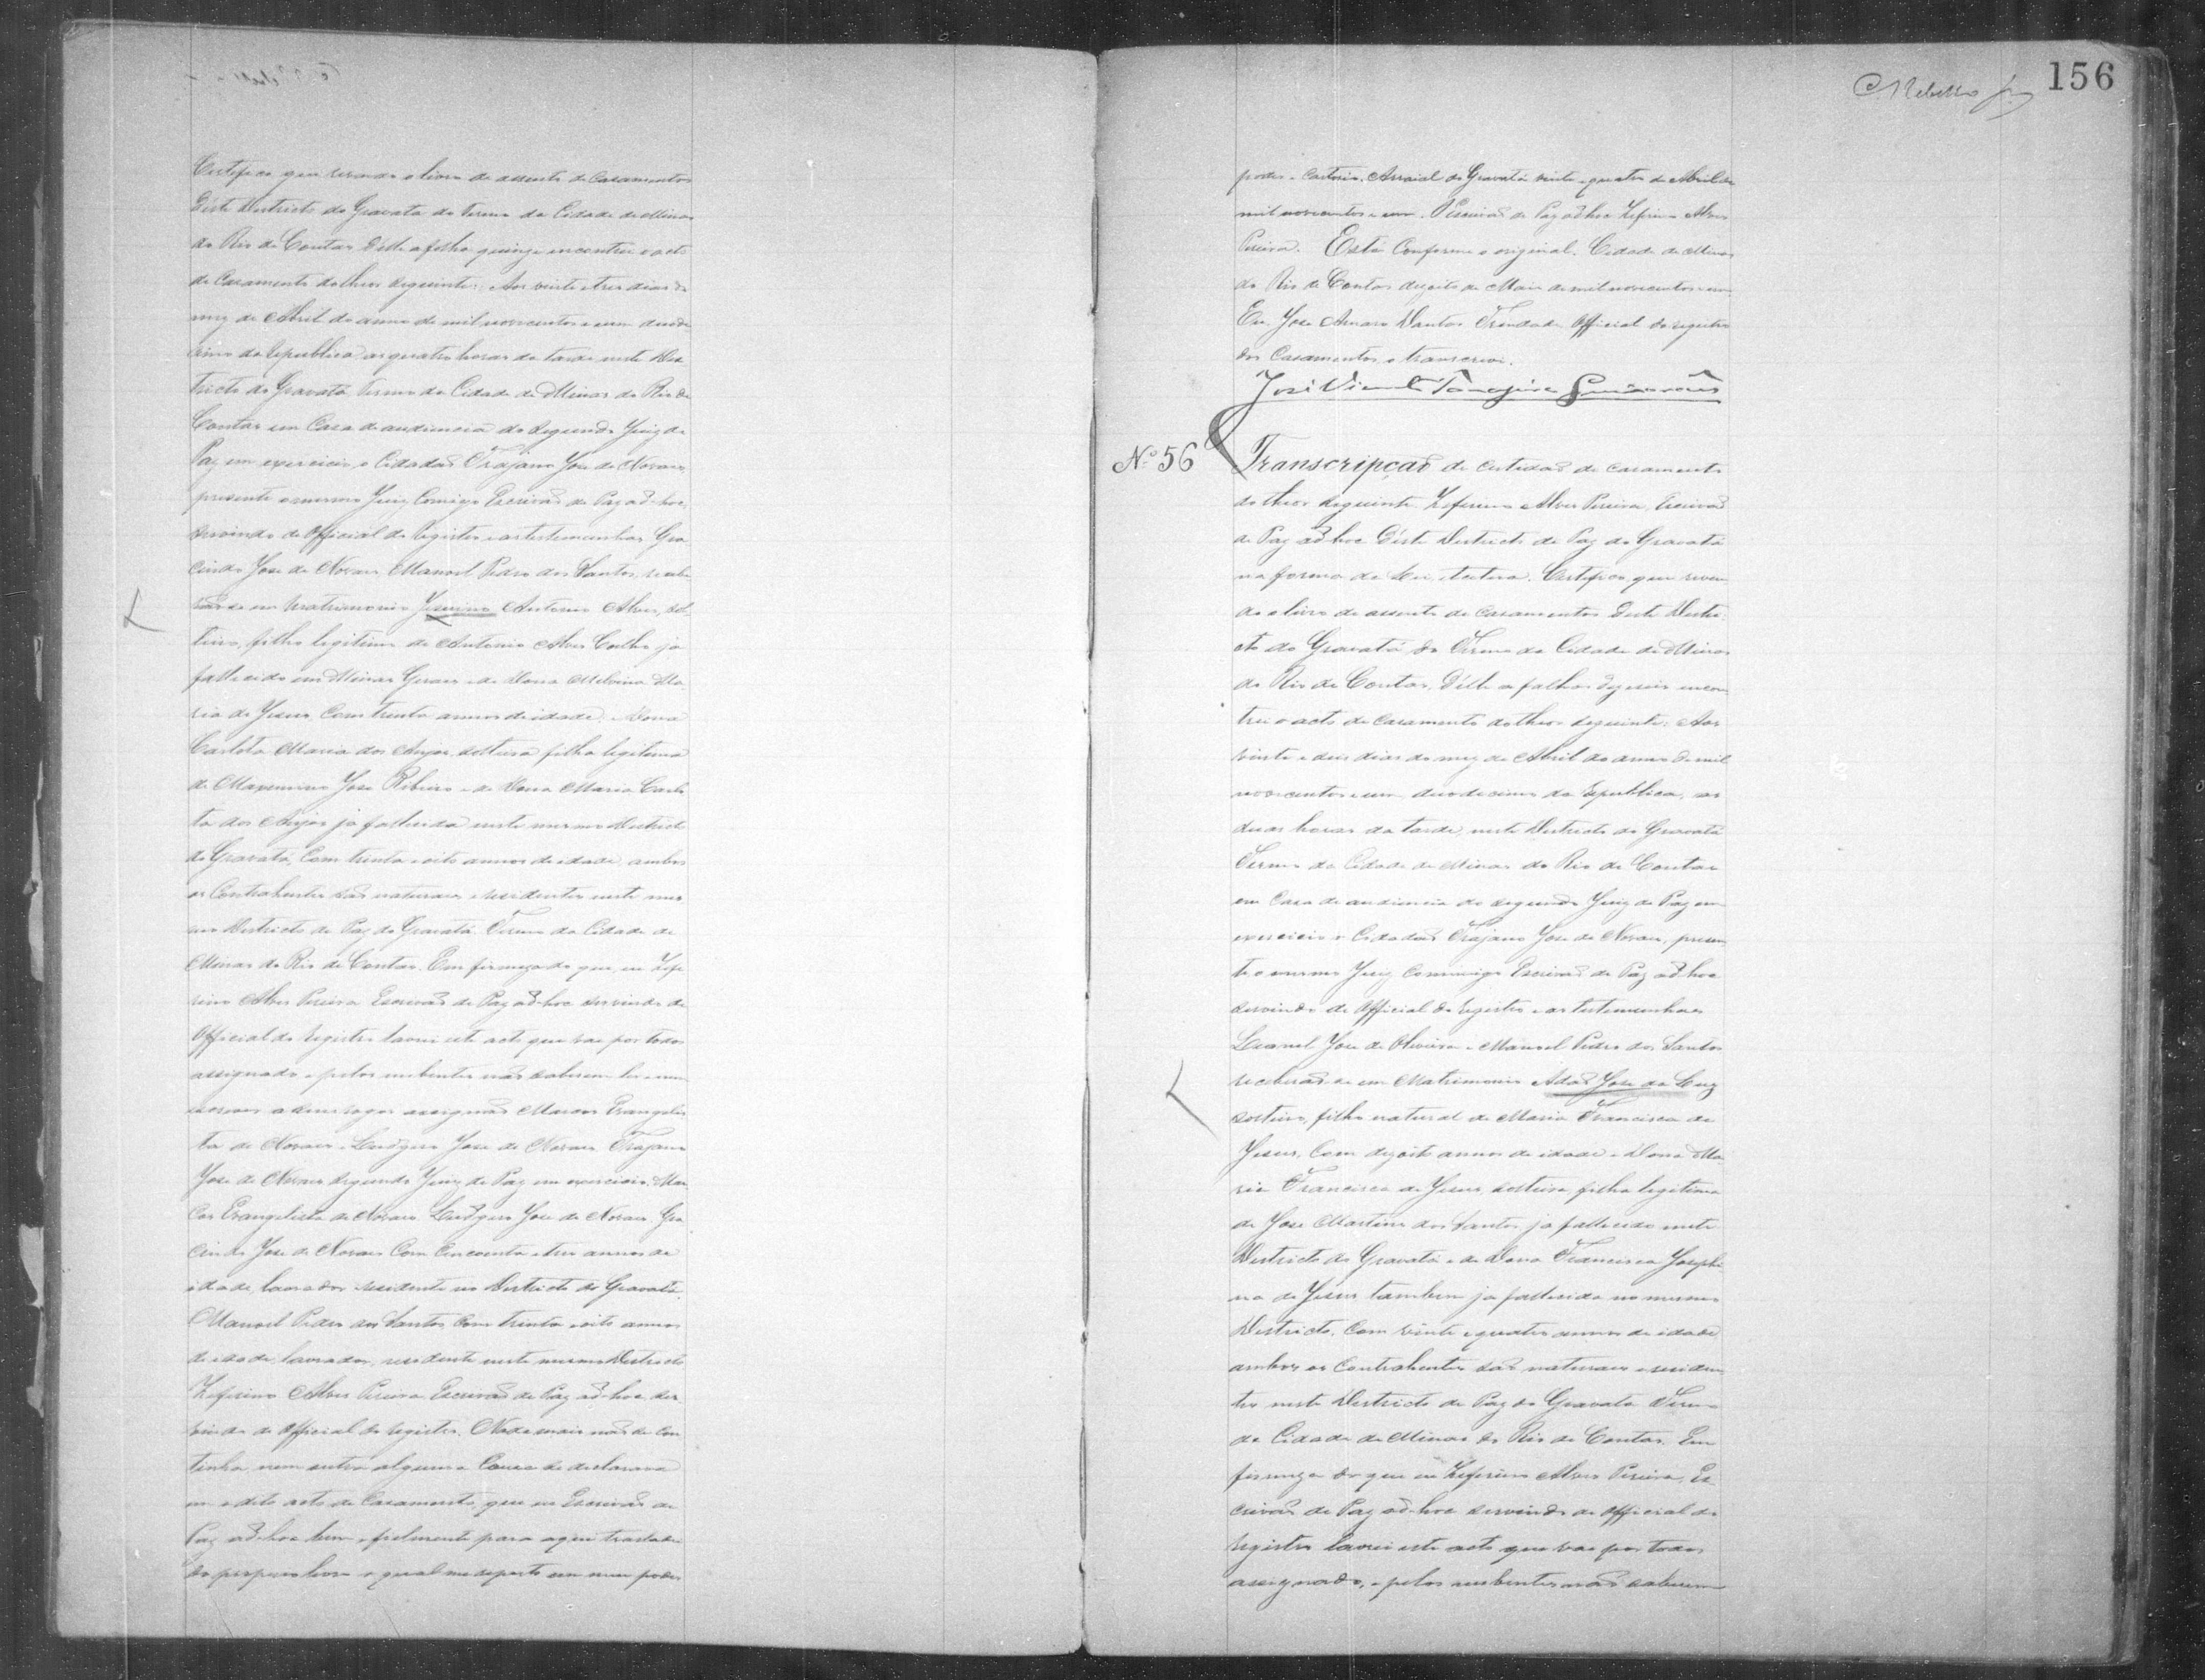 Certifico que revendo o livro de assento de Casamentos
Déste Districto do Gravatá do Termo da Cidade de Minas
do Rio de Contas délle a folha quinze encontrei o acto
de Casamento do theor seguinte: Aos vinte e tres dias do
mez de Abril do anno de mil novecentos e um duode
cimo da Republica as quatro horas da tarde neste Dis
tricto do Gravatá Termo da Cidade de Minas do Rio de
Contas em Casa de audiencia do Segundo Juiz de
Paz em exercicio o Cidadaõ Trajano Jose de Novaes,
presente o mesmo Juiz Comigo Escrivaõ de Paz ad-hoc
servindo de Official do Registro e as testemunhas Gra
cindo Jose de Novaes Manoel Pedro dos Santos, recebe
raõ-se em Matrimonio Jesuino Antonio Alves, sol
teiro, filho legitimo de Antonio Alves Coelho ja
fallecido em Minas Geraes e de Dona Melvina Ma
ria de Jesus, Com trinta annos de idade, e Dona
Carlota Maria dos Anjos, solteira filha legitima
de Maximino Jose Ribeiro e de Dona Maria Carlo
ta dos Anjos ja fallecida neste mesmo Districto
do Gravatá, Com trinta e oito annos de idade, ambos
os Contrahentes saõ naturaes e residentes neste mes
mo Districto de Paz do Gravatá Termo da Cidade de
Minas do Rio de Contas. Em firmeza do que, eu Zefe
rino Alves Pereira Escrivaõ de Paz ad-hoc servindo de
Official do Registro lavrei este acto que vae por todos
assignado e pelos nubentes naõ saberem ler e nem
escrever a seus rogos assignaõ Marcos Evangelis
ta de Novaes e Ludgero Jose de Novaes. Trajano
Jose de Novaes Segundo Juiz de Paz em exercicio, Mar
cos Evangelista de Novaes. Ludgero Jose de Novaes Gra
cindo Jose de Novaes Com Cincoenta e tres annos de
idade, lavrador residente no Districto do Gravatá.
Manoel Pedro dos Santos Com trinta e oito annos
de idade, lavrador, residente neste mesmo Districto
Zeferino Alves Pereira, Escrivaõ de Paz ad-hoc, ser
vindo de Official do registro. Nada mais naõ se Con
tinha nem outra alguma Cousa se declarava
em o dito acto de Casamento, que eu Escrivaõ de
Paz ad-hoc bem e fielmente para aqui trasladei
do proprio livro o qual me reporto em meu poder
C. Rebello Jr 156
poder e Cartorio. Arraial do Gravatá vinte e quatro de Abril de
mil novecentos e um. O Escrivaõ de Paz ad hoc Zeferino Alves
Pereira. Está Conforme o original. Cidade de Minas
do Rio de Contas dezoito de Maio de mil novecentos e um
Eu, Jose Amaro Dantas Trindade Official do registro
dos Casamentos o transcrevi.
José Vicente Tanajura Guimarães
Nº 56 Transcripçaõ de certidaõ de casamento
do theor seguinte. Zeferino Alves Pereira, Escrivaõ
de Paz ad-hoc Déste Districto de Paz do Gravatá
na forma da Lei, etcetera. Certifico que reven
do o livro de assento de casamentos Deste Distri
cto do Gravatá do Termo da Cidade de Minas
do Rio de Contas, Délle a folhas dezeseis encon
trei o acto de Casamento do theor seguinte: Aos
vinte e dois dias do mez de Abril do anno de mil
novecentos e um, duodecimo da Republica, as
duas horas da tarde, neste Districto do Gravatá
Termo da Cidade de Minas do Rio de Contas
em Casa de audiencia do segundo Juiz de Paz em
exercicio o Cidadaõ Trajano Jose de Novaes, presen
te o mesmo Juiz, Commigo Escrivaõ de Paz ad-hoc
servindo de Official do registro e as testemunhas
Leonel Jose de Oliveira e Manoel Pedro dos Santos
receberaõ-se em Matrimonio Adaõ Jose da Luz
solteiro, filho natural de Maria Francisca de
Jesus, Com dezoito annos de idade e Dona Ma
ria Francisca de Jesus, solteira, filha legitima
de Jose Martins dos Santos ja fallecido neste
Districto do Gravatá e de Dona Francisca Josephi
na de Jesus tambem ja fallecida no mesmo
Districto, Com vinte e quatro annos de idade
ambos os Contrahentes saõ naturaes e residen
tes neste Districto de Paz do Gravatá Termo
da Cidade de Minas do Rio de Contas. Em
firmeza do que eu Zeferino Alves Pereira, Es
crivaõ de Paz ad-hoc servindo de Official do
registro lavrei este acto que vae por todos
assignado, e pelos nubentes naõ saberem